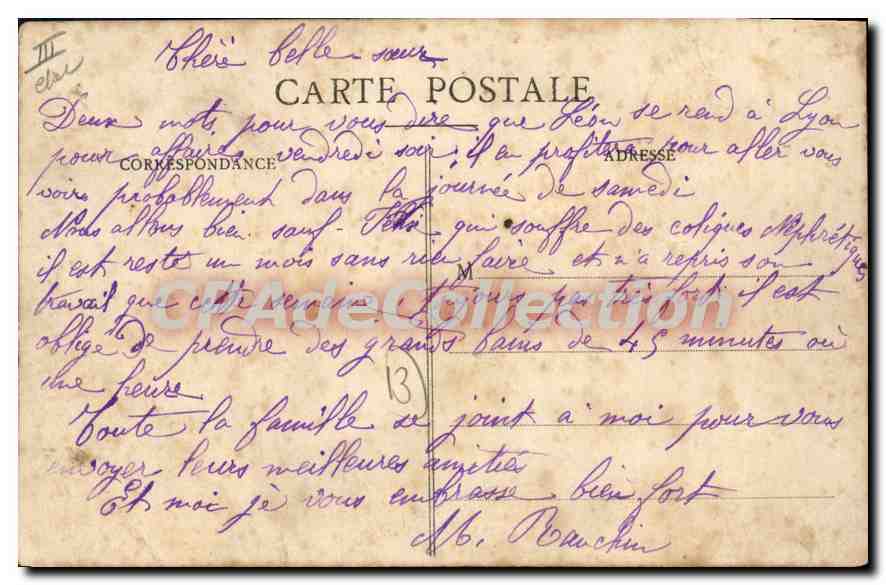 III
Chère belle-sœur
CARTE POSTALE
Deux mots pour vous dire que Léon se rend à Lyon
pour affaires vendredi soir il en profitera pour aller vous
CORRESPONDANCE
ADRESSE
voir probablement dans la journée de samedi
Nous allons bien sauf qui souffre des coliques Néphrétiques
il est resté un mois sans rien faire et n'a repris son
M
travail que cette semaine toujours pas très fort il est
CPAdeCollection
obligé de prendre des grands bains de 45 minutes où
une heure
13)
Toute la famille se joint à moi pour vous
envoyer leurs meilleures amitiés
Et moi je vous embrasse bien fort
M. Rauchin